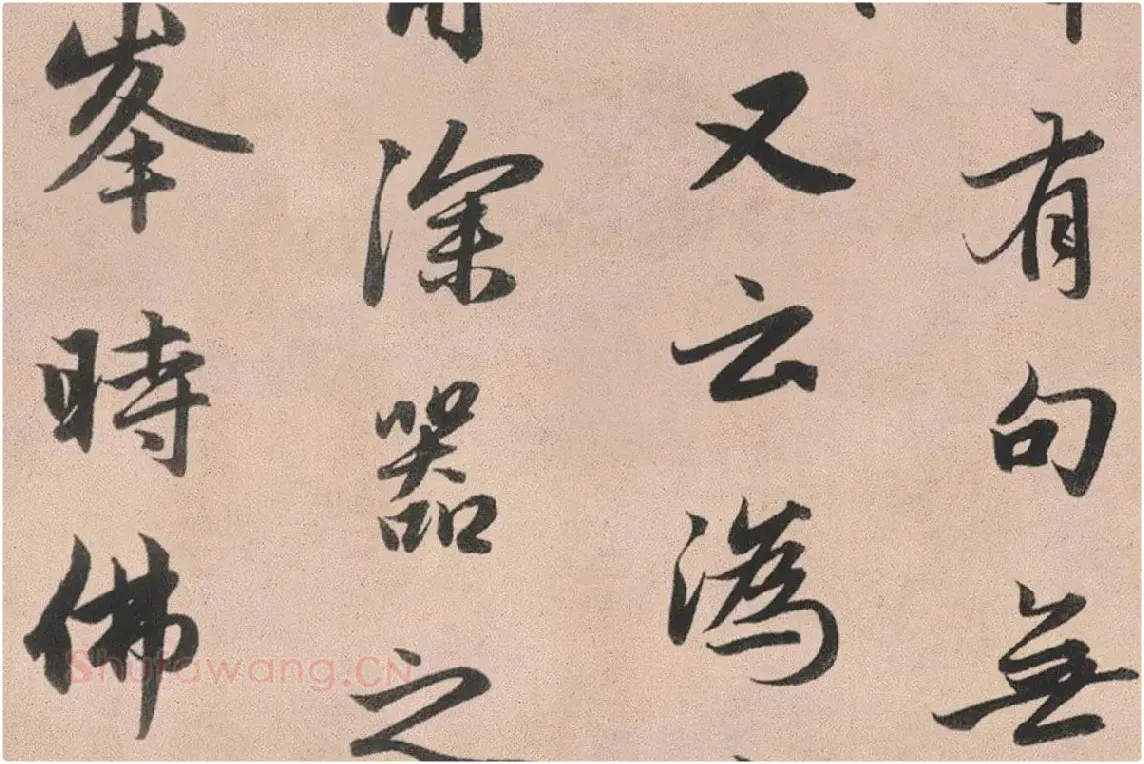 有句無
又云溈
深器之
峯時佛
Shufawang.CN